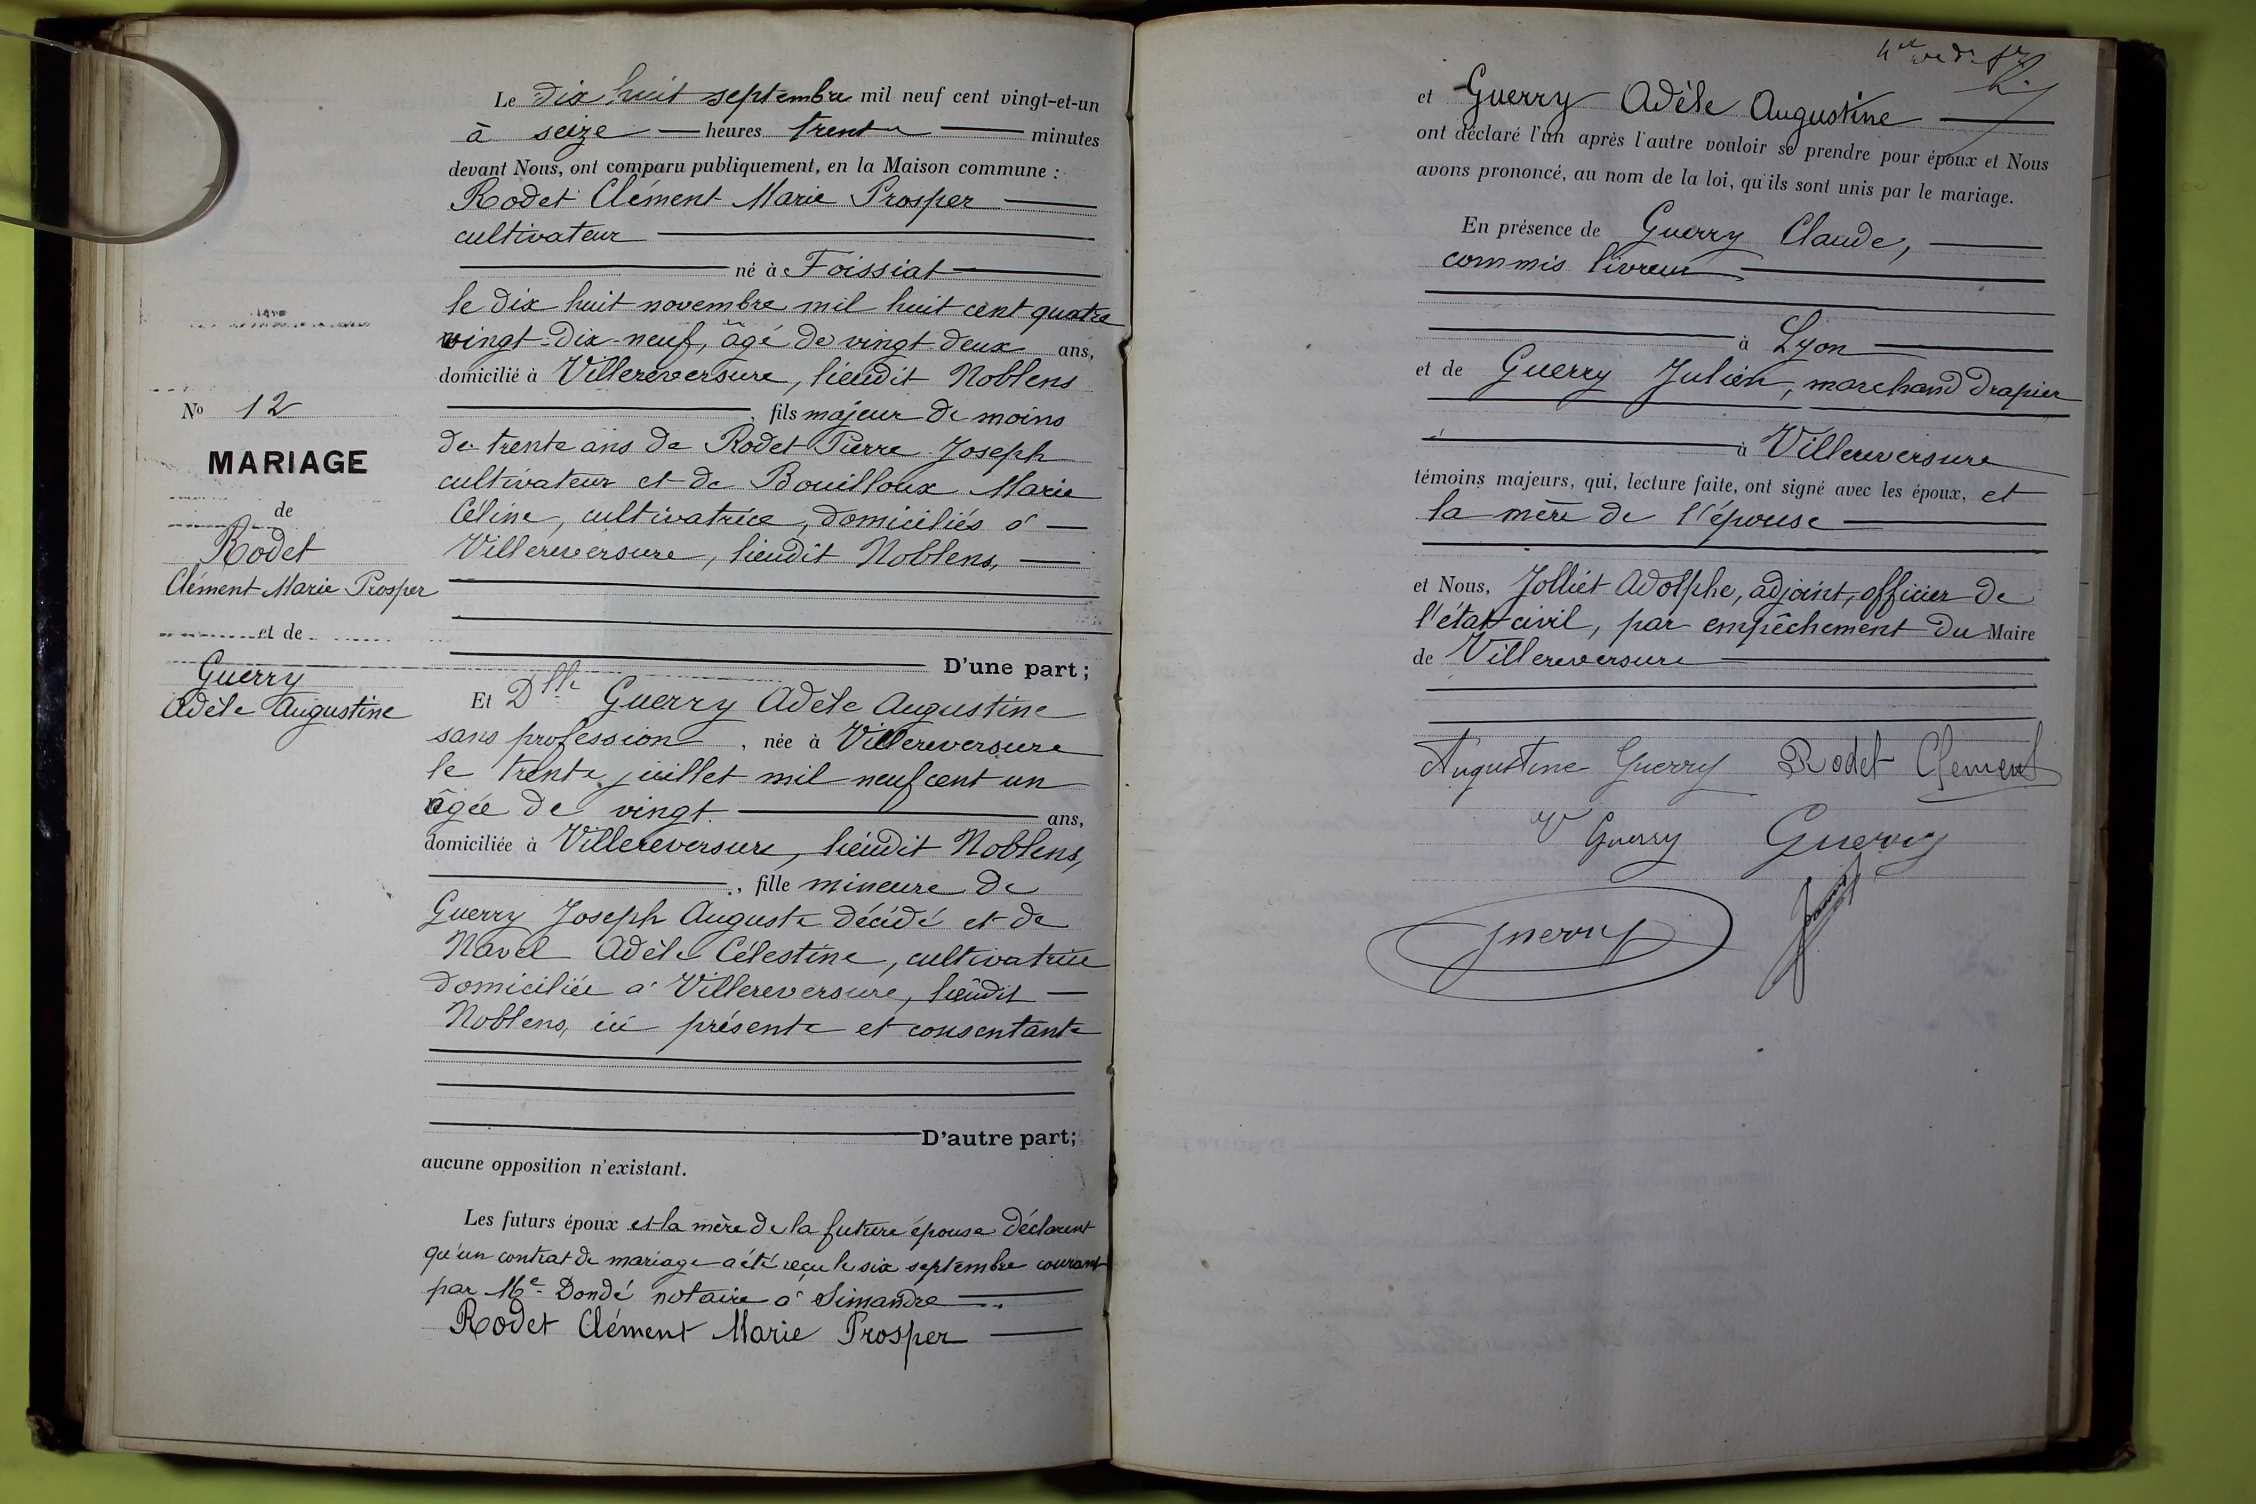 Le dix huit septembre mil neuf cent vingt-et-un
à seize heures trente minutes
devant Nous, ont comparu publiquement, en la Maison commune :
Rodet Clément Marie Prosper
cultivateur
né à Foissiat
le dix huit novembre mil huit cent quatre
vingt-dix-neuf, âgé de vingt deux ans,
domicilié à Villereversure, lieudit Noblens
, fils majeur de moins
de trente ans de Rodet Pierre Joseph
cultivateur et de Bouilloux Marie
Céline, cultivatrice, domiciliés à
Villereversure, lieudit Noblens,
D'une part ;
No 12
MARIAGE
de
Rodet
Clément Marie Prosper
et de
Guerry
Adèle Augustine
Et Dlle Guerry Adèle Augustine
sans profession, née à Villereversure
le trente juillet mil neuf cent un
âgée de vingt ans,
domiciliée à Villereversure, lieudit Noblens,
, fille mineure de
Guerry Joseph Auguste décédé et de
Navel Adèle Célestine, cultivatrice
domiciliée à Villereversure, lieudit
Noblens, ici présente et consentante
D'autre part ;
aucune opposition n'existant.
Les futurs époux et la mère de la future épouse déclarent
qu'un contrat de mariage a été reçu le six septembre courant
par Me Dondé notaire à Simandre
Rodet Clément Marie Prosper
et Guerry Adèle Augustine
ont déclaré l'un après l'autre vouloir se prendre pour époux et Nous
avons prononcé, au nom de la loi, qu'ils sont unis par le mariage.
En présence de Guerry Claude,
commis livreur
à Lyon
et de Guerry Julien, marchand drapier
à Villereversure
témoins majeurs, qui, lecture faite, ont signé avec les époux, et
la mère de l'épouse
et Nous, Jolliet Adolphe, adjoint, officier de
l'état civil, par empêchement du Maire
de Villereversure
Augustine Guerry Rodet Clément
Ve Guerry Guerry
Guerry